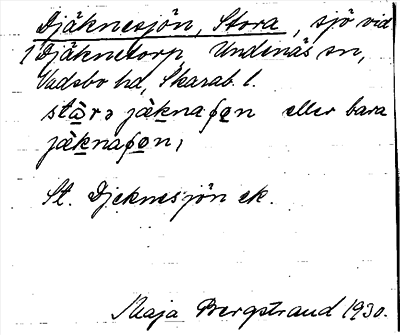 Djäknesjön, Stora, sjö vid
1 Djäknetorp Undenäs sn,
Vadsbo hd, Skarab. l.
stä̀rə jàknaʃo̱n eller bara
jàknaʃo̱n,
St. Djeknesjön ek.
Maja Bergstrand 1930.